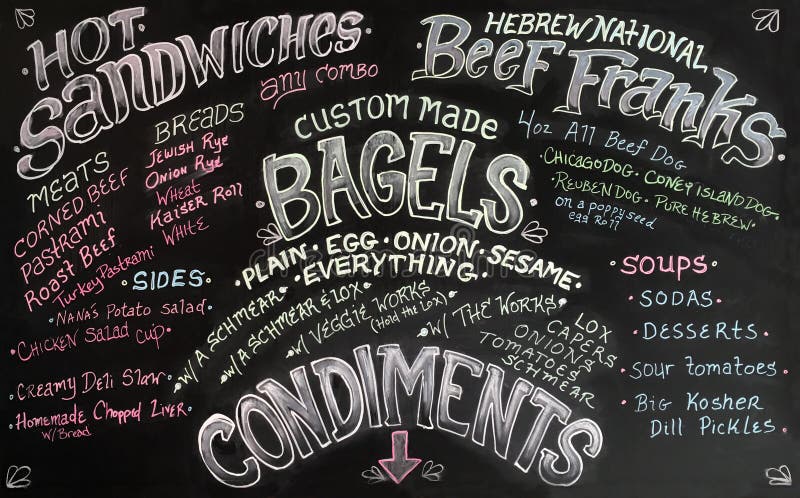 HOT
SANDWICHES
any COMBO
MEATS
CORNED BEEF
Pastrami
Roast Beef
Turkey Pastrami
BREADS
Jewish Rye
Onion Rye
Wheat
Kaiser Roll
White
SIDES
• Nana's Potato Salad
• Chicken Salad Cup
• Creamy Deli Slaw
• Homemade Chopped Liver •
w/Bread
CUSTOM MADE
BAGELS
PLAIN • EGG • ONION • SESAME •
• EVERYTHING •
W/A SCHMEAR
W/A SCHMEAR & LOX
W/ VEGGIE WORKS
(Hold the Lox)
W/ THE WORKS
LOX
CAPERS
ONIONS
TOMATOES
SCHMEAR
CONDIMENTS
HEBREW NATIONAL
Beef Franks
4oz All Beef Dog
• CHICAGO DOG • CONEY ISLAND DOG •
• REUBEN DOG • PURE HEBREW •
on a poppyseed
egg Roll
SOUPS
• SODAS
• DESSERTS
• Sour Tomatoes
• Big Kosher
Dill Pickles •